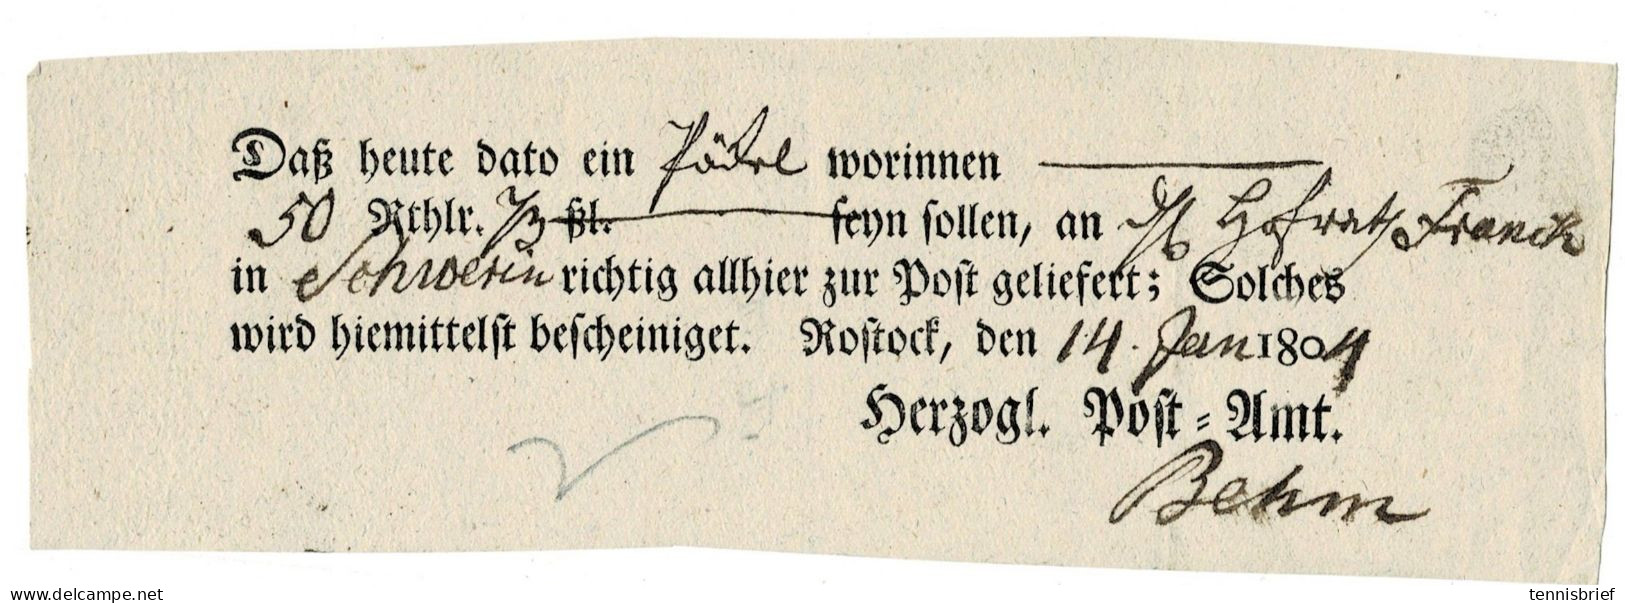 Daß heute dato ein Päckel worinnen
50 Rthlr. ßl. seyn sollen, an Hofrath Franck
in Schwerin richtig allhier zur Post geliefert; Solches
wird hiemittelst bescheiniget. Rostock, den 14. Jan 1804
Herzogl. Post-Amt.
Behm
my.delcampe.net
tennisbrief